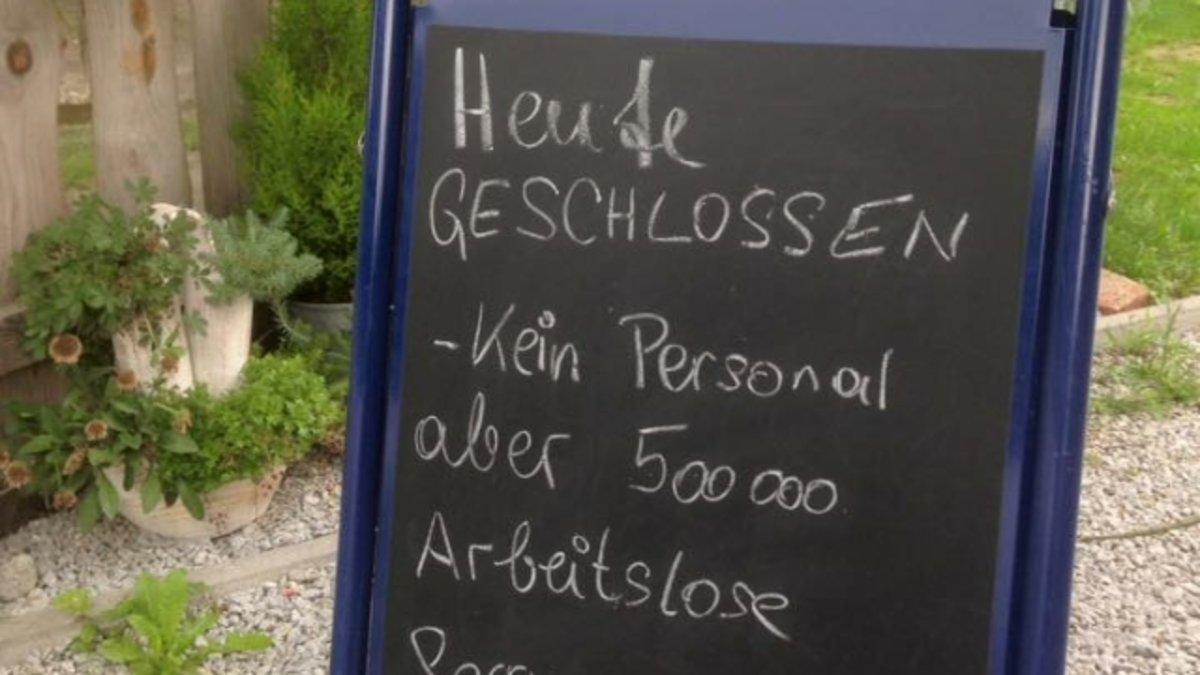 Heute
GESCHLOSSEN
-Kein Personal
aber 500 000
Arbeitslose